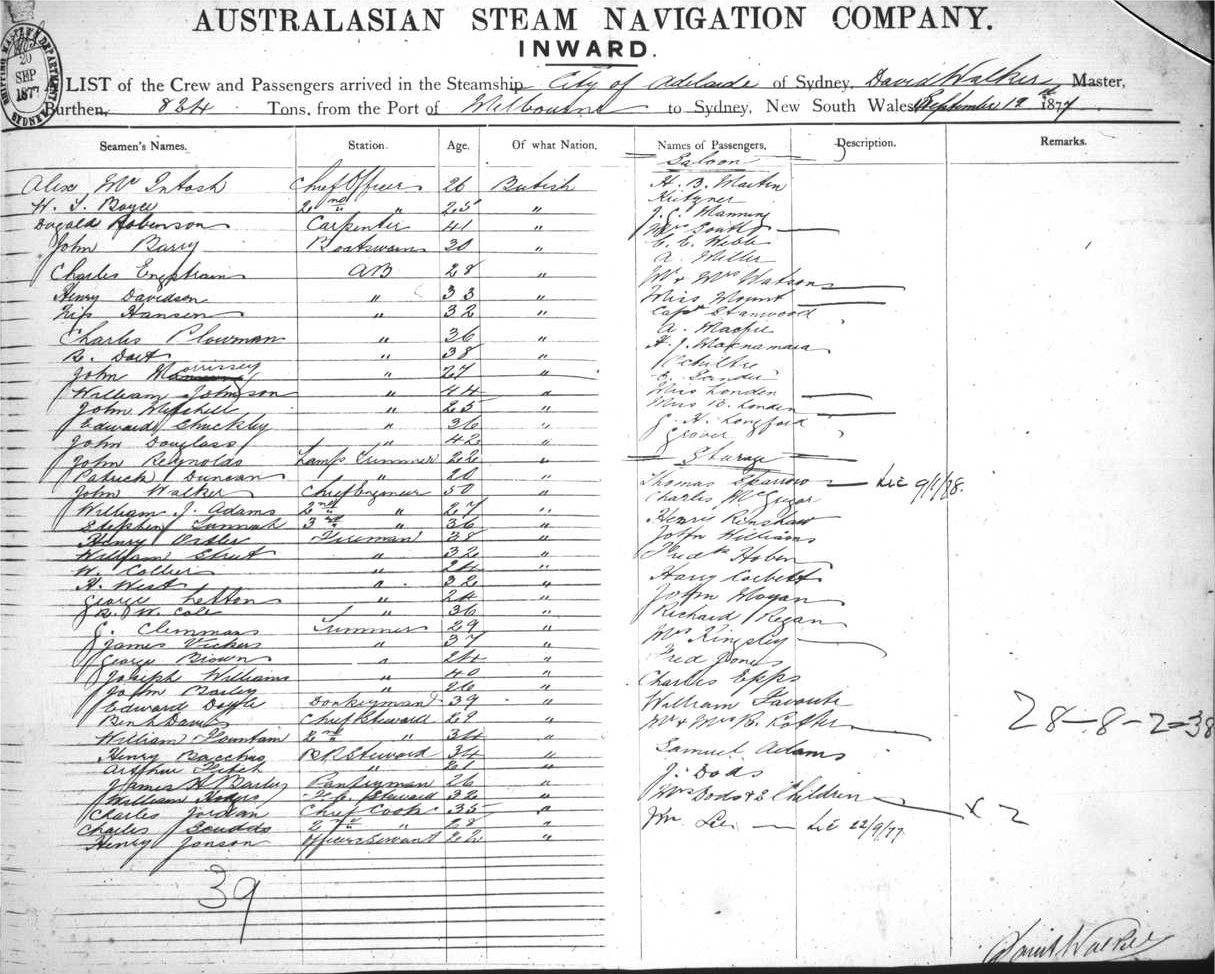 AUSTRALASIAN STEAM NAVIGATION COMPANY.
INWARD.
SHIPPING MASTER'S DEPARTMENT SYDNEY
20
SEP
1877
LIST of the Crew and Passengers arrived in the Steamship City of Adelaide of Sydney, David Walker Master,
Burthen, 824 Tons, from the Port of Melbourne to Sydney, New South Wales, September 19th 1877
Seamen's Names. Station. Age. Of what Nation. Names of Passengers. Description. Remarks.
Saloon
Alex McIntosh Chief Officer 26 British H. B. Martin
H. J. Boyce 2nd " 25 "
J. C. Manning
Dugald Robinson Carpenter 41 " Mrs South
John Barry Boatswain 30 " C. C. Webb
A. Miller
Charles Engstrain AB 28 " Mr & Mrs Watson
Henry Davidson " 33 " Miss Mount
Nis Hansen " 32 " Capt Stanwood
A. Macfie
Charles Plowman " 36 " H. J. Macnamara
R. Dart " 38 " Ochiltre
John Morrissey " 27 " Sander
William Johnson " 44 " Miss Londen
John Mitchell " 25 " Miss B. Londen
Edward Shuckley " 36 " G. H. Longford
John Douglass " 42 " Grover
John Reynolds Lamp Trimmer 22 " Sturage
Patrick Duncan " 20 "
Thomas Sparrow Lic 9/1/78.
John Walker Chief Engineer 50 " Charles McGregor
William J. Adams 2nd " 27 " Henrie Renshaw
Stephen Tunnah 3rd " 36 "
Henry Fireman 38 " John Williams
William Strut " 32 " Fredk Hoben
W. Collier " 24 "
H. West " 32 " Harry Corbett
George Letton " 24 " John Hogan
R. W. Cole " 36 " Richard Regan
G. Clemmans Trimmer 29 "
James Vickers " 37 " Mrs Kingsley
George Brown " 24 " Fred Jones
Joseph Williams " 40 " Charles Epps
John Bailey " 26 "
Edward Doyle Donkeyman 39 " William Favourite
Ben Davis Chief Steward 29 " Mr & Mrs R.
28-8-2=38
William Fountain 2nd " 34 "
Henry Bacchus Steward 34 " Samuel Adams
Arthur Fitch " 21 "
James H Bailey Pantryman 26 " J. Dods
William Steward 32 " Mrs Dods & 2 Children x 2
Charles Jordan Chief Cook 35 "
Charles Scudds 2nd " 28 " Wm Lee Lic 22/9/77
Henry Jonson Officers Servant 22 "
39
David Walker